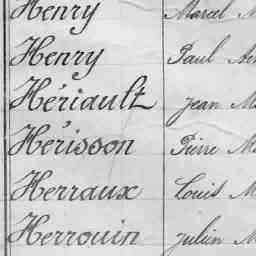 Henry Marcel M
Henry Paul
Hériault Jean M
Hérisson Pierre M
Herraux Louis M
Herrouin Julien M